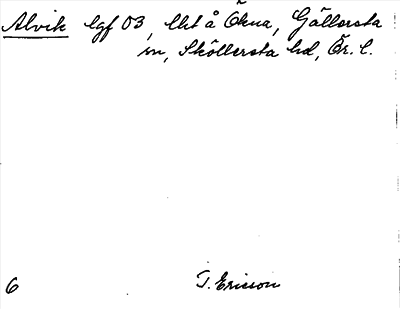 Alvik lgf 03, lht å Ökna, Gällersta
sn, Sköllersta hd, Ör. l.
6 T. Ericson